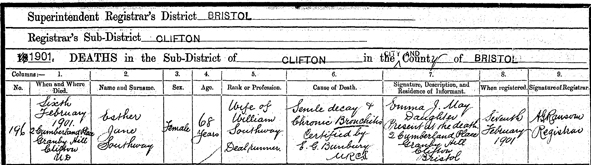 Superintendent Registrar's District BRISTOL
Registrar's Sub-District CLIFTON
1901. DEATHS in the Sub-District of CLIFTON in the CITY AND County of BRISTOL
Columns:— 1. 2. 3. 4. 5. 6. 7. 8. 9.
No. When and Where Died. Name and Surname. Sex. Age. Rank or Profession. Cause of Death. Signature, Description, and Residence of Informant. When registered. Signature of Registrar.
196
Sixth
February
1901.
2 Cumberland Place
Granby Hill
Clifton
U.D
Esther
Jane
Southway
Female
68
Years
Wife of
William
Southway
Deal runner
Senile decay &
Chronic Bronchitis
Certified by
E. G. Bunbury
MRCS
Emma J. May
Daughter
Present at the death
2 Cumberland Place
Granby Hill
Clifton
Bristol
Seventh
February
1901
Ransom
Registrar